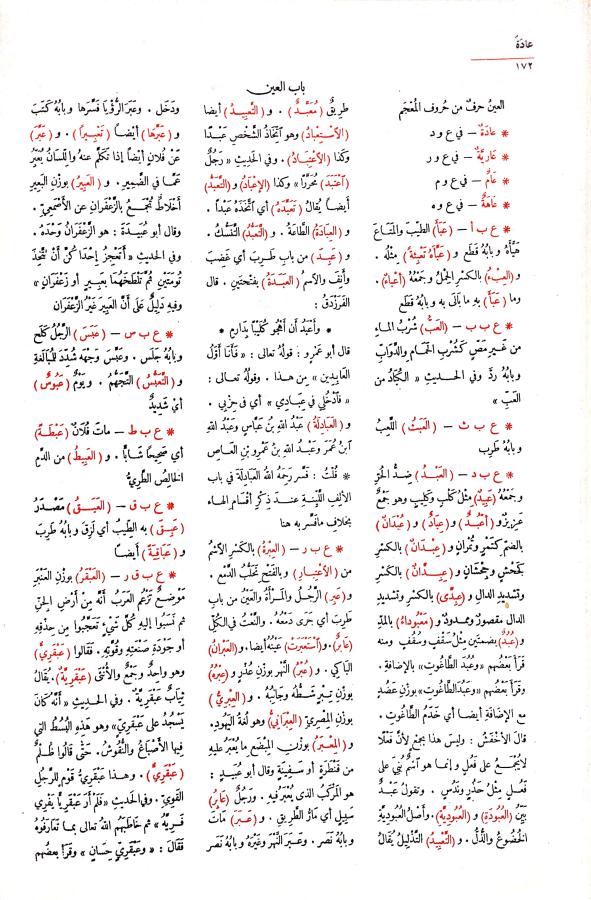 عادَةٌ
١٧٢
باب العين
العينُ حرفٌ من حُروف المُعْجَم
* عادَةٌ – في ع و د
* عاريَّةٌ – في ع و ر
* عَامٌ – في ع و م
* عَاهَةٌ – في ع و ه
* ع ب أ – (عَبَأَ) الطِّيبَ والمَتَاعَ
هَيَّأَهُ وبابُهُ قَطَع و (عَبَّأَهُ تَعْبِئَةً) مِثْلُهُ .
و (العِبْءُ) بالكسْرِ الحِمْلُ وجَمْعُهُ (أَعْبَاءٌ) .
وما (عَبَأَ) بِهِ ما بَالَى به وبابُهُ قَطع
* ع ب ب – (العَبُّ) شُرْبُ الماءِ
من غير مَصٍّ كشُرْبِ الحَمَامِ والدَّوَابِّ
وبابُهُ ردَّ وفي الحَديثِ « الكُبَادُ من
العَبِّ »
* ع ب ث – (العَبَثُ) اللَّعِبُ
وبابُهُ طَرِب
* ع ب د – (العَبْدُ) ضِدُّ الحُرِّ
وجَمْعُهُ (عَبِيدٌ) مِثْلُ كَلْبٍ وكَلِيبٍ وهو جَمْعٌ
عَزيزٌ و (أَعْبُدٌ) و (عِبَادٌ) و (عُبْدَانٌ)
بالضمّ كتَمْرٍ وتُمْرَان و (عِبْدَانٌ) بالكسْرِ
كجَحْشٍ وجِحْشَانٍ و (عِبِدَّانٌ) بالكسْرِ
وتشديد الدال و (عِبِدَّى) بالكسر وتشديد
الدال مقصورٌ وممدودٌ و (مَعْبُوداءُ) بالمَدِّ
و (عُبُدٌ) بضمتَين مِثْلُ سَقْفٍ وسُقُفٍ ومنه
قرأ بَعْضُهم « وعُبُدَ الطَّاغُوتِ » بالإضافةِ.
وقرأ بَعْضُهم «وعَبُدَ الطَّاغُوتِ» بوزْنِ عَضُدٍ
مع الإضَافَةِ أيضا أي خَدَمُ الطَّاغُوت .
قال الأخْفَشُ : وليسَ هذا بجمْعٍ لأنَّ فَعْلًا
لا يُجْمَعُ على فَعُلٍ وإنما هو اسْمٌ بُنِيَ على
فَعُلٍ مِثْلُ حَذُرٍ ونَدُسٍ . وتقولُ عَبْدٌ
بَيِّنُ (العُبُودَةِ) و (العُبُودِيَّةِ). وأصلُ العُبُوديَّةِ
الخُضُوعُ والذُّلُّ . و (التَّعْبِيدُ) التَّذْلِيلُ يُقالُ
طَرِيقٌ (مُعَبَّدٌ) . و (التَّعْبِيدُ) أيضا
(الاسْتِعْبَادُ) وهو اتِّخَاذُ الشَّخْصِ عَبْدًا
وكَذا (الاعْتِبَادُ) . وفي الحَديثِ « رَجُلٌ
(اعْتَبَدَ) مُحَرَّراً» وكذا (الإعْبَادُ) و (التَّعَبُّدُ)
أيضاً يُقالُ (تَعَبَّدَهُ) أي اتَّخَذَهُ عَبْداً .
و (العِبَادَةُ) الطَّاعَةُ . و (التَّعَبُّدُ) التَّنَسُّكُ .
و (عَبِدَ) من باب طَرِبَ أي غَضِبَ
وأَنِفَ والاسْمُ (العَبَدَةُ) بفتحَتين . قال
الفَرَزْدَقُ :
* وأَعْبَدُ أن أَهْجُو كُلَيْبًا بدَارِمِ *
قال أبو عَمْرو : قولُهُ تعالى : « فأنا أَوَّلُ
العَابِدِين » مِن هذا . وقولُهُ تعالى :
« فَادْخُلِي في عِبَادِي » أي في حِزْبي .
و (العَبَادِلَةُ) عَبْدُ اللهِ بنُ عَبَّاسٍ وعَبْدُ اللهِ
ابنُ عُمَرَ وعَبْدُ اللهِ بنُ عَمْرِو بنِ العَاصِ
* قُلْتُ : فَسَّر رَحِمَهُ اللهُ العَبَادِلةَ في باب
الألفِ اللَّيِّنةِ عند ذِكْرِ أقْسَامِ الهاءِ
بخِلافِ ما فَسَّر به هنا
* ع ب ر – (العِبْرَةُ) بالكَسْرِ الاسْمُ
من (الاعْتِبَارِ) وبالفتْحِ تَحَلُّبُ الدَّمْعِ .
و (عَبِرَ) الرَّجُلُ والمَرْأَةُ والعَيْنُ من باب
طَرِبَ أي جَرَى دَمْعُهُ . والنَّعْتُ في الكُلِّ
(عَابِرٌ). و (اسْتَعْبَرَتْ) عَيْنُهُ أيضا. و (العَبْرَانُ)
البَاكِي . و (عُبْرُ) النَّهْرِ بوزْنِ عُذْرٍ و (عِبْرُهُ)
بوزْنِ تِبْرٍ شَطُّهُ وجَانِبُهُ . و (العِبْرِيُّ)
بوزْنِ المِصْرِيِّ (العِبْرَانِيُّ) وهو لُغَةُ اليَهُودِ.
و (المِعْبَرُ) بوزْنِ المِبْضَعِ ما يُعْبَرُ عليه
من قَنْطَرَةٍ أو سَفِينَةٍ وقال أبو عُبَيدٍ :
هو المَرْكَبُ الذى يُعْبَرُ فيه . ورَجُلٌ (عَابِرُ)
سَبِيلٍ أي مَارُّ الطَّرِيقِ . و (عَبَرَ) مَاتَ
وبابُهُ نَصَر . وعَبَر النَّهْرَ وغَيْرَهُ وبابُهُ نَصَر
ودَخَل . وعَبَرَ الرُّؤْيَا فَسَّرَها وبابُهُ كَتَبَ
و (عَبَّرَهَا) أيضًا (تَعْبِيراً) . و (عَبَّرَ)
عَنْ فلان أيضًا إذا تكلَّم عنهُ واللِّسَانُ يُعَبِّرُ
عَمَّا في الضَّمِيرِ . و (العَبِيرُ) بوزْنِ البَعيرِ
أخْلَاطٌ تُجْمَعُ بالزَّعْفَرانِ عن الأصْمَعِيِّ .
وقال أبو عُبيدَةَ : هو الزَّعْفَرانُ وَحْدَهُ .
وفي الحديثِ « أَتَعْجِزُ إحْدَاكُنَّ أنْ تَتَّخِذَ
تُومَتَيْنِ ثُمَّ تَلْطَخَهُمَا بعَبِيرٍ أو زَعْفَرانٍ »
وفيه دَلِيلٌ على أنَّ العَبيرَ غَيْرُ الزَّعْفَرانِ
* ع ب س – (عَبَسَ) الرَّجُلُ كَلَحَ
وبابُهُ جَلَس . وعَبَّسَ وَجْهَه شُدِّدَ للمُبالَغةِ
و (التَّعَبُّسُ) التَّجَهُّمُ . ويَوْمٌ (عَبُوسٌ)
أيْ شَدِيدٌ
* ع ب ط – ماتَ فُلانٌ (عَبْطَةً)
أي صَحيحًا شَابًّا . و (العَبِيطُ) من الدَّمِ
الخَالِصُ الطَّرِيُّ
* ع ب ق – (العَبَقُ) مَصْدَرُ
(عَبِقَ) به الطِّيبُ أي لَزِقَ وبابُهُ طَرِبَ
و (عَبَاقِيَةً) أيضًا
* ع ب ق ر – (العَبْقَرُ) بوزْنِ العَنْبَرِ
مَوْضِعٌ تَزْعُم العَرَبُ أنَّهُ مِنْ أرْضِ الجِنِّ
ثم نَسَبُوا إليه كُلَّ شيءٍ تَعَجَّبُوا من حِذْقِهِ
أو جَوْدَةِ صَنْعَتِهِ وقُوَّتِهِ . فقالوا (عَبْقَرِيٌّ)
وهو واحِدٌ وجَمْعٌ والأُنْثَى (عَبْقَرِيَّةٌ). يُقَالُ
ثِيَابٌ عَبْقَرِيَّةٌ . وفي الحديث « أنَّهُ كانَ
يَسْجُدُ على عَبْقَرِيٍّ» وهو هَذِهِ البُسُطُ التي
فِيها الأصْبَاغُ والنُّقُوشُ . حَتَّى قالُوا ظُلْمٌ
(عَبْقَرِيٌّ) . وهـذا عَبْقَرِيُّ قَوْمٍ للرَّجُلِ
القَوِيِّ. وفى الحَدِيثِ «فَلَمْ أَرَ عَبْقَرِيًّا يَفْرِي
فَرِيَّهُ » ثم خَاطَبَهُم اللهُ تعالى بما تَعَارَفُوه
فَقَالَ : « وعَبْقَرِيٍّ حِسَانٍ » وقَرأَ بعضُهم